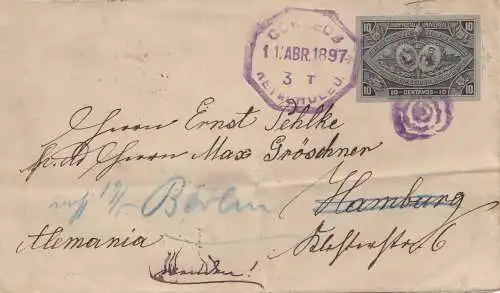 CORREOS
11 ABR. 1897
3 T
RETALHULEU
10 10
10 CENTAVOS 10
Herrn Ernst Pehlke
Herrn Max Gröschner
Berlin Hamburg
Alemania Klosterstr. 6